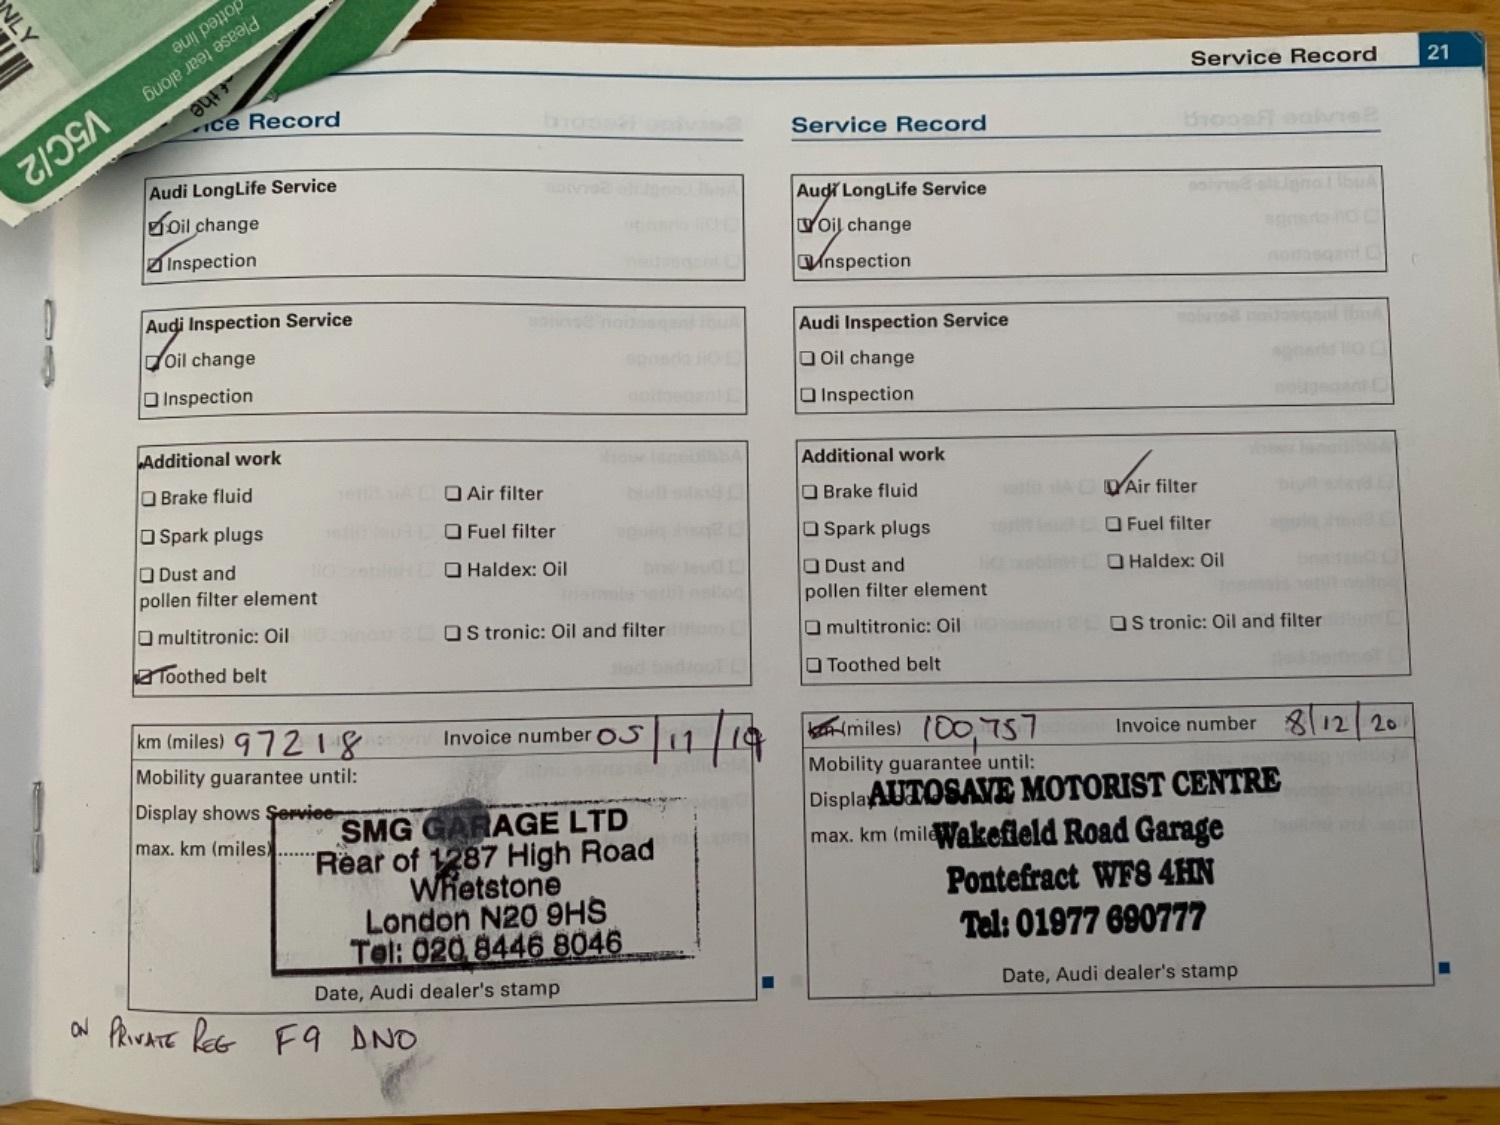 ONLY
Please tear along
dotted line
V5C/2
the
Service Record 21
ice Record
Audi LongLife Service
Oil change
Inspection
Audi Inspection Service
Oil change
Inspection
Additional work
Brake fluid
Air filter
Spark plugs
Fuel filter
Dust and
pollen filter element
Haldex: Oil
multitronic: Oil
S tronic: Oil and filter
Toothed belt
km (miles) 97218 Invoice number 05/11/19
Mobility guarantee until:
Display shows Service
max. km (miles)..........
SMG GARAGE LTD
Rear of 1287 High Road
Whetstone
London N20 9HS
Tel: 020 8446 8046
Date, Audi dealer's stamp
ON PRIVATE REG F9 DNO
Service Record
Audi LongLife Service
Oil change
Inspection
Audi Inspection Service
Oil change
Inspection
Additional work
Brake fluid
Air filter
Spark plugs
Fuel filter
Dust and
pollen filter element
Haldex: Oil
multitronic: Oil
S tronic: Oil and filter
Toothed belt
km (miles) 100,757 Invoice number 8/12/20
Mobility guarantee until:
Display
max. km (mile
AUTOSAVE MOTORIST CENTRE
Wakefield Road Garage
Pontefract WF8 4HN
Tel: 01977 690777
Date, Audi dealer's stamp